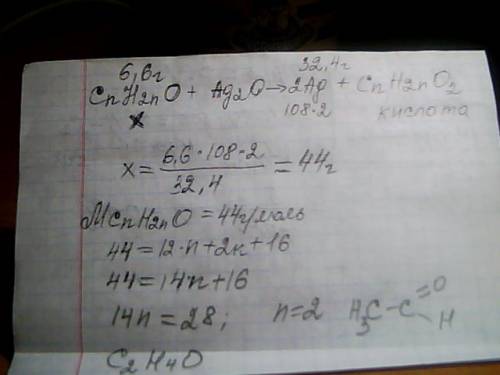 6,6г 32,4г
CnH2nO + Ag2O → 2Ag + CnH2nO2
x 108·2 кислота
x = 6,6·108·2 / 32,4 = 44г
MCnH2nO = 44г/моль
44 = 12·n + 2n + 16
44 = 14n + 16
14n = 28; n = 2 H3C-C=O H
C2H4O